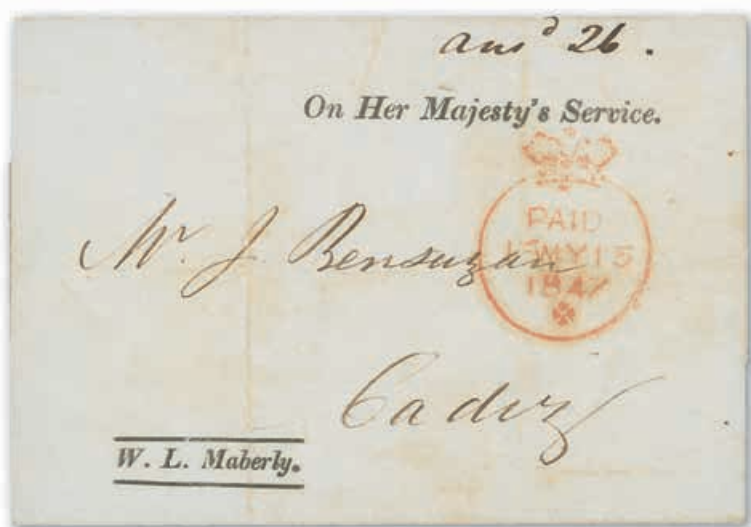 ansd 26.
On Her Majesty's Service.
PAID
13 MY 13
1847
Mr. J Bensuzan
Cadiz
W. L. Maberly.